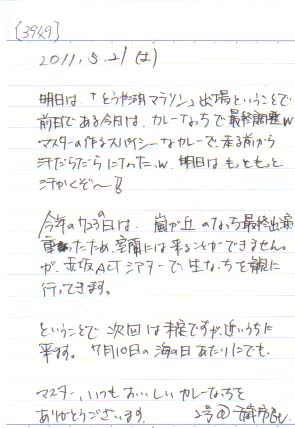 [3949]
2011.5.21(土)
明日は「とうや湖マラソン」出場ということで
前日である今日は、カレーなっちで最終調整w
マスターの作るスパイシーなカレーで、来る前から
汗だらだらになったw。明日はもっともっと
汗かくぞ〜!!
今年の 日は、嵐が丘のなっち最終出演
ったため、室蘭には来ることができません。
が、赤坂ACTシアターで、生なっちを観に
行ってきます。
ということで次回は未定ですが、近いうちに
来ます。7月10日の海の日あたりにでも。
マスター、いつもおいしいカレーなっちを
ありがとうございます。 2号@ 市民